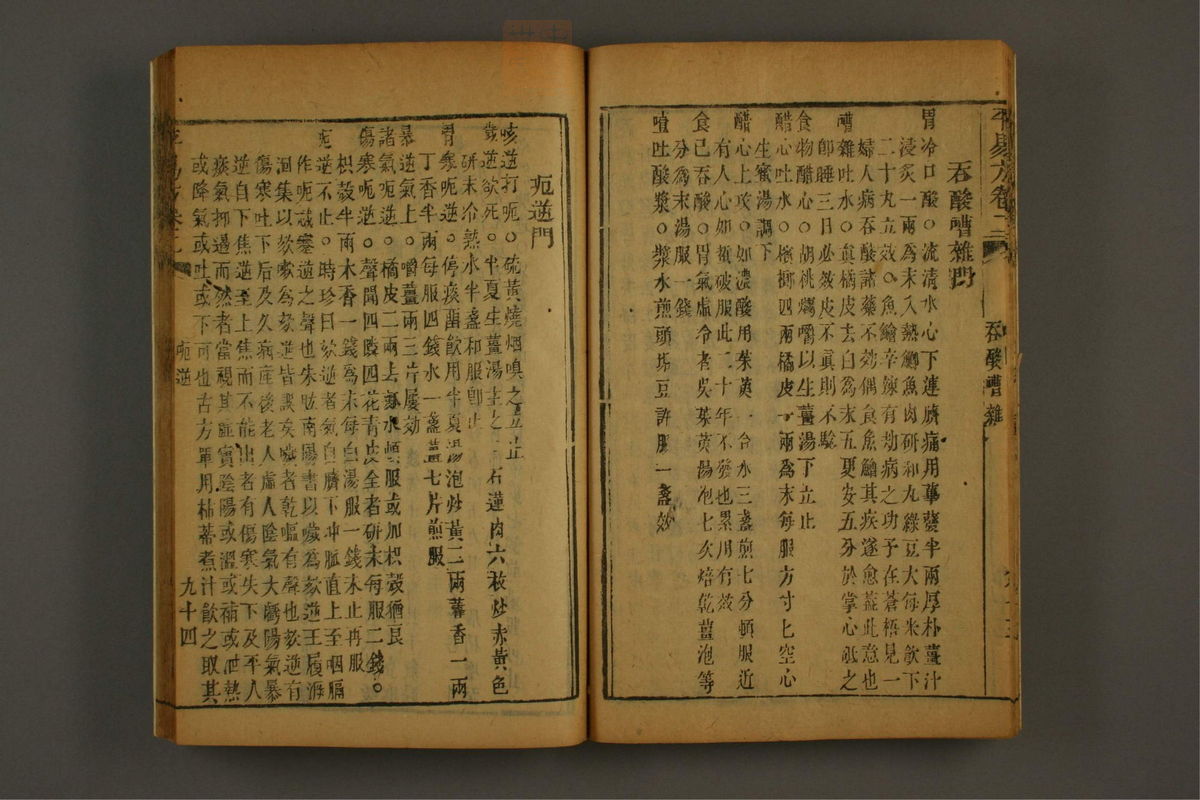 吞酸嘈雜門
胃冷口酸○流清水心下連臍痛用蓽蕟半兩厚朴薑汁
浸炙一兩爲末入熱鯽魚肉研和丸綠豆大每米飲下
二十丸立效○魚鱠辛辣有劫病之功予在蒼梧見一
婦人病吞酸諸藥不効偶食魚鱠其疾遂愈葢此意也
嘈雜吐水○眞橘皮去白爲末五更安五分於掌心䑛之
卽睡三日必效皮不眞則不驗
食物醋心○胡桃爛嚼以生薑湯下立止
醋心吐水○檳榔四兩橘皮一兩爲末每服方寸匕空心
生蜜湯調下
醋心上攻○如濃酸用茱萸一合水三盞煎七分頓服近
有人心如蜇破服此二十年不發也累用有效
食已吞酸○胃氣虛冷者吳茱萸湯泡七次焙乾薑泡等
分爲末湯服一錢
噎吐酸漿○漿水煎頭垢豆許服一盞效
吞酸嘈雜
呃逆門
咳逆打呃○硫黃燒烟嗅之立止
歲逆欲死○半夏生薑湯主之○石蓮肉六枚炒赤黃色
研末冷熱水半盞和服卽止
胃寒呃逆○停痰㽲飲用半夏湯泡炒黃二兩藿香一兩
丁香半兩每服四錢水一盞薑七片煎服
暴逆氣上○嚼薑兩三片屢効
諸氣呃逆○橘皮二兩去瓤水煎頓服或加枳殼猶良
傷寒呃逆○聲聞四隣四花青皮全者研末每服二錢○
枳殼半兩木香一錢爲末每白湯服一錢未止再服
呃逆不止○時珍曰欬逆者氣自臍下冲脈直上至咽膈
作呃忒蹇逆之聲也朱肱南陽書以噦爲欬逆王履溯
洄集以欬嗽爲欬逆皆誤矣噦者乾嘔有聲也欬逆有
傷寒吐下后及久病産後老人虛人陰氣大虧陽氣暴
逆自下焦逆至上焦而不能出者有傷寒失下及平人
痰氣抑遏而然者當視其虛實陰陽或溫或補或泄熱
或降氣或吐或下可也古方單用柿蒂煮汁飲之取其
呃逆
九十四